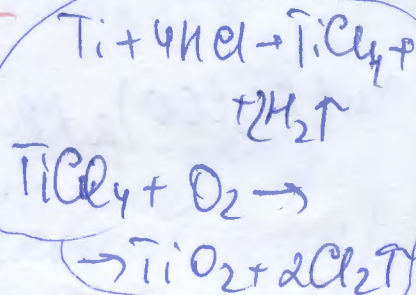 Ti + 4HCl → TiCl₄ +
+ 2H₂↑
TiCl₄ + O₂ →
→ TiO₂ + 2Cl₂↑